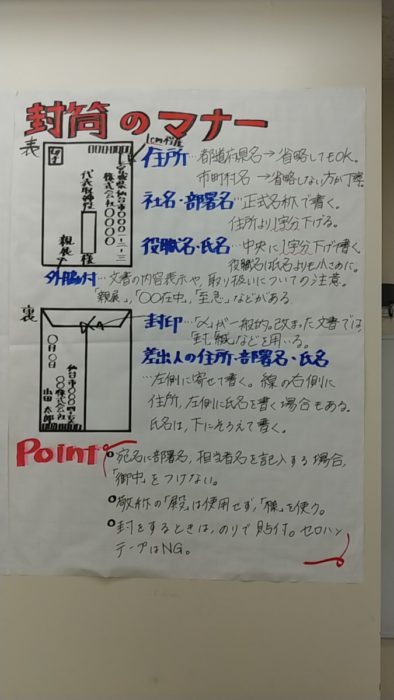 封筒のマナー
表
1cm程度
切手
宮城県仙台市〇〇〇一-二-三
株式会社〇〇〇〇
代表取締役
様
親展
住所…都道府県名→省略してもOK。
市町村名→省略しない方が丁寧。
社名・部署名…正式名称で書く。
住所より1字分下げる。
役職名・氏名…中央に1字分下げ書く。
役職名は氏名よりも小さめに。
外脇付…文書の内容表示や、取り扱いについての注意。
「親展」,「〇〇在中」,「至急」などがある
裏
〇月〇日
株式会社
山田 太郎
封印…「〆」が一般的。改まった文書では,
「封」「緘」などを用いる。
差出人の住所・部署名・氏名
…左側に寄せて書く。線の右側に
住所,左側に氏名を書く場合もある。
氏名は,下にそろえて書く。
Point
宛名に部署名,担当者名を記入する場合,
「御中」をつけない。
敬称の「殿」は使用せず,「様」を使う。
封をするときは,のりで貼付。セロハン
テープはNG。